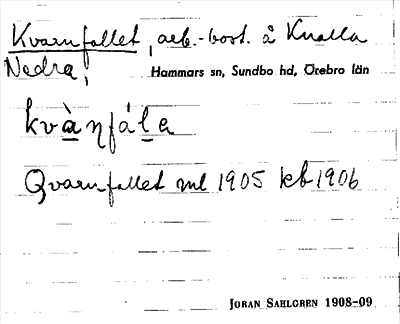 Kvarnfallet, arb.-bost. å Knalla
Nedra,
Hammars sn, Sundbo hd, Örebro län
kvàηfála
Qvarnfallet ml 1905 kb 1906
JÖRAN SAHLGREN 1908-09